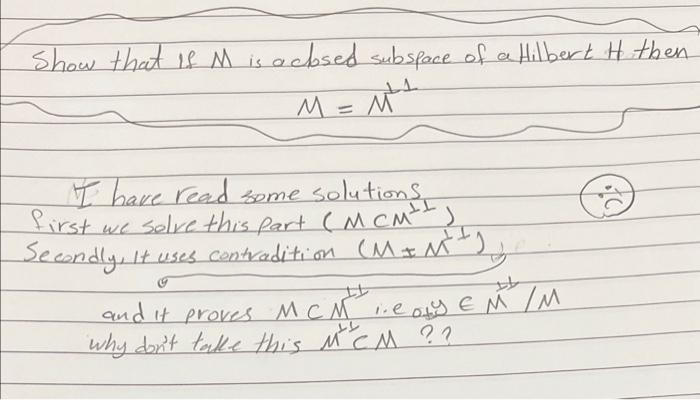 Show that if M is a closed subspace of a Hilbert H then
M = M⊥⊥
I have read some solutions
first we solve this part (M⊂M⊥⊥)
Secondly, It uses contradition (M≠M⊥⊥),
and it proves M⊂M⊥⊥ i.e 0≠y ∈ M⊥⊥/M
why don't take this M⊥⊥⊂M ??